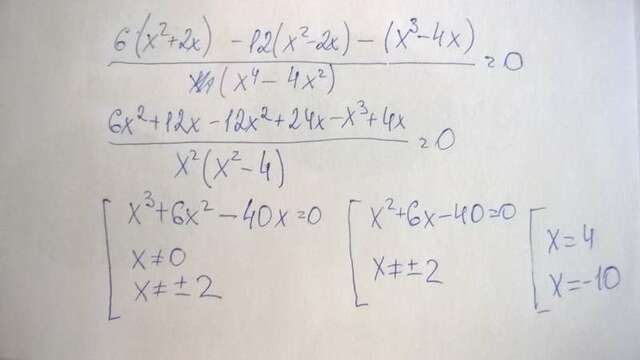 6(x²+2x) -12(x²-2x) - (x³-4x)
(x⁴ - 4x²)
= 0
6x²+12x-12x²+24x-x³+4x
x²(x²-4)
= 0
x³+6x²-40x=0
x≠0
x≠±2
x²+6x-40=0
x≠±2
x=4
x=-10